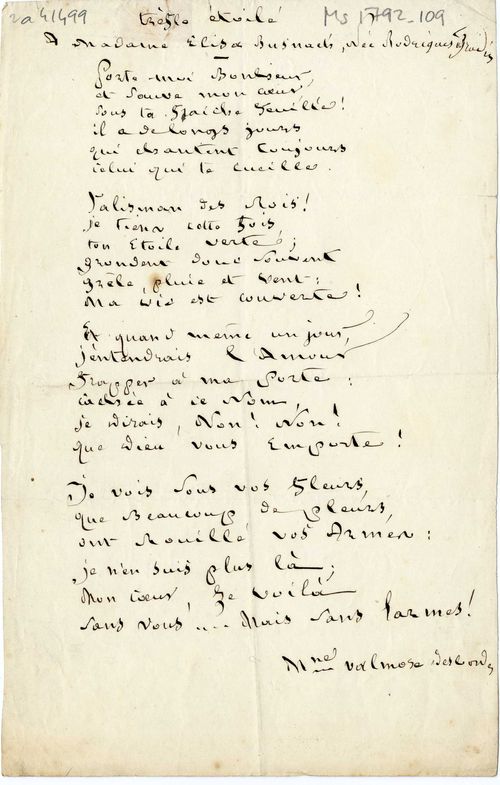 ra 41499
Ms 1792-109
trèfle étoilé
A Madame Eliza Busnach, née Rodrigues
Porte-moi Bonheur,
et sauve mon cœur,
sous ta fraiche feuille!
il a de longs jours
qui chantent toujours
celui qui te cueille.
Talisman des Rois!
je tiens cette fois,
ton Etoile verte;
grondent donc souvent
grèle, pluie et vent:
Ma vie est couverte!
Et quand même un jour,
j'entendrais l'Amour
frapper à ma porte:
cachée à ce Nom,
je dirais, Non! Non!
que Dieu vous Emporte!
Je vois sous vos fleurs,
que Beaucoup de pleurs,
ont Rouillé vos Armes:
je n'en suis plus là;
Mon cœur, le voilà
sans vous... Mais sans larmes!
Mme valmore desbordes